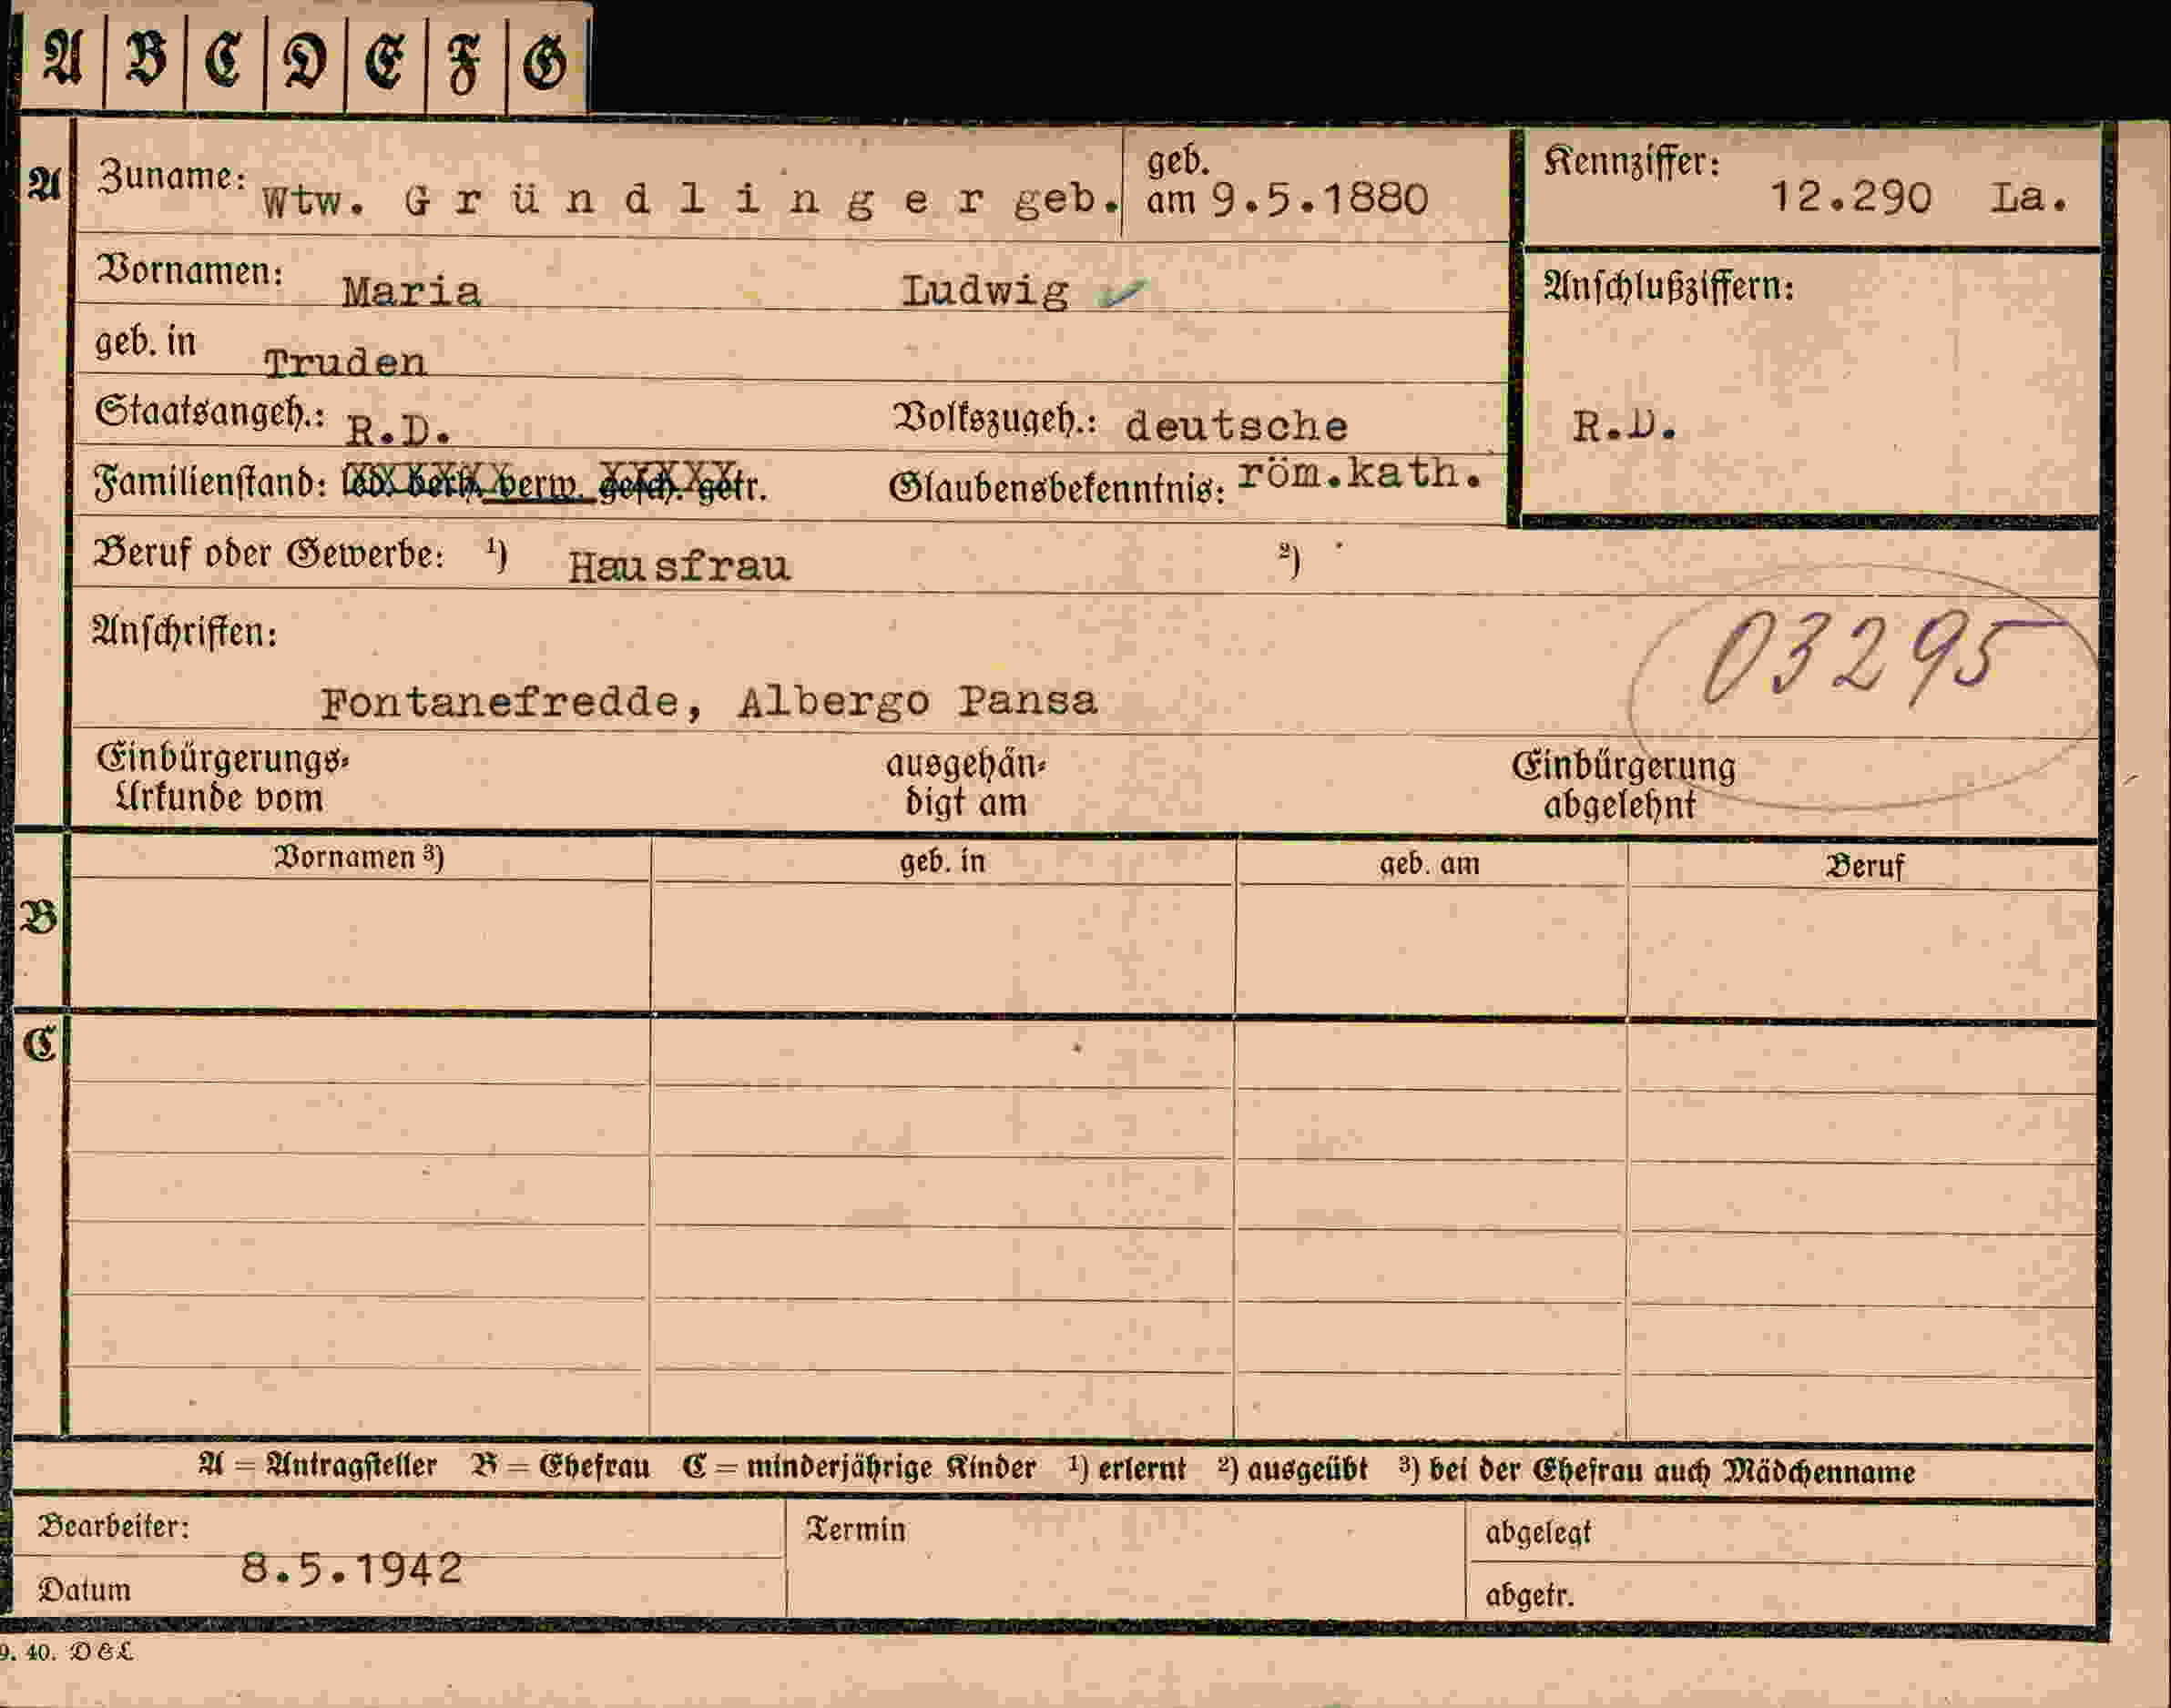 A B C D E F G
A Zuname: Wtw. G r ü n d l i n g e r geb. geb. am 9.5.1880 Kennziffer: 12.290 La.
Vornamen: Maria Ludwig Anschlußziffern:
geb. in Truden
Staatsangeh.: R.D. Volkszugeh.: deutsche R.D.
Familienstand: led. verh. verw. gesch. getr. Glaubensbekenntnis: röm.kath.
Beruf oder Gewerbe: ¹) Hausfrau ²)
Anschriften: 03295
Fontanefredde, Albergo Pansa
Einbürgerungs-
Urkunde vom
ausgehän-
digt am
Einbürgerung
abgelehnt
Vornamen ³) geb. in geb. am Beruf
B
C
A = Antragsteller B = Ehefrau C = minderjährige Kinder ¹) erlernt ²) ausgeübt ³) bei der Ehefrau auch Mädchenname
Bearbeiter: Termin abgelegt
Datum 8.5.1942 abgetr.
9. 40. D & L